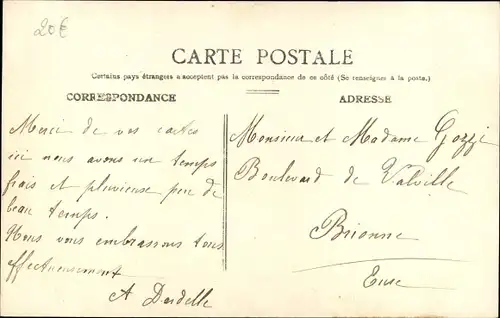 20€
CARTE POSTALE
Certains pays étrangers n'acceptent pas la correspondance de ce côté (Se renseigner à la poste.)
CORRESPONDANCE
ADRESSE
Merci de vos cartes
ici nous avons un temps
frais et pluvieuse peu de
beau temps.
Nous vous embrassons tous
affectueusement
A Dardelle
Monsieur et Madame Gozzi
Boulevard de Valville
Brionne
Eure